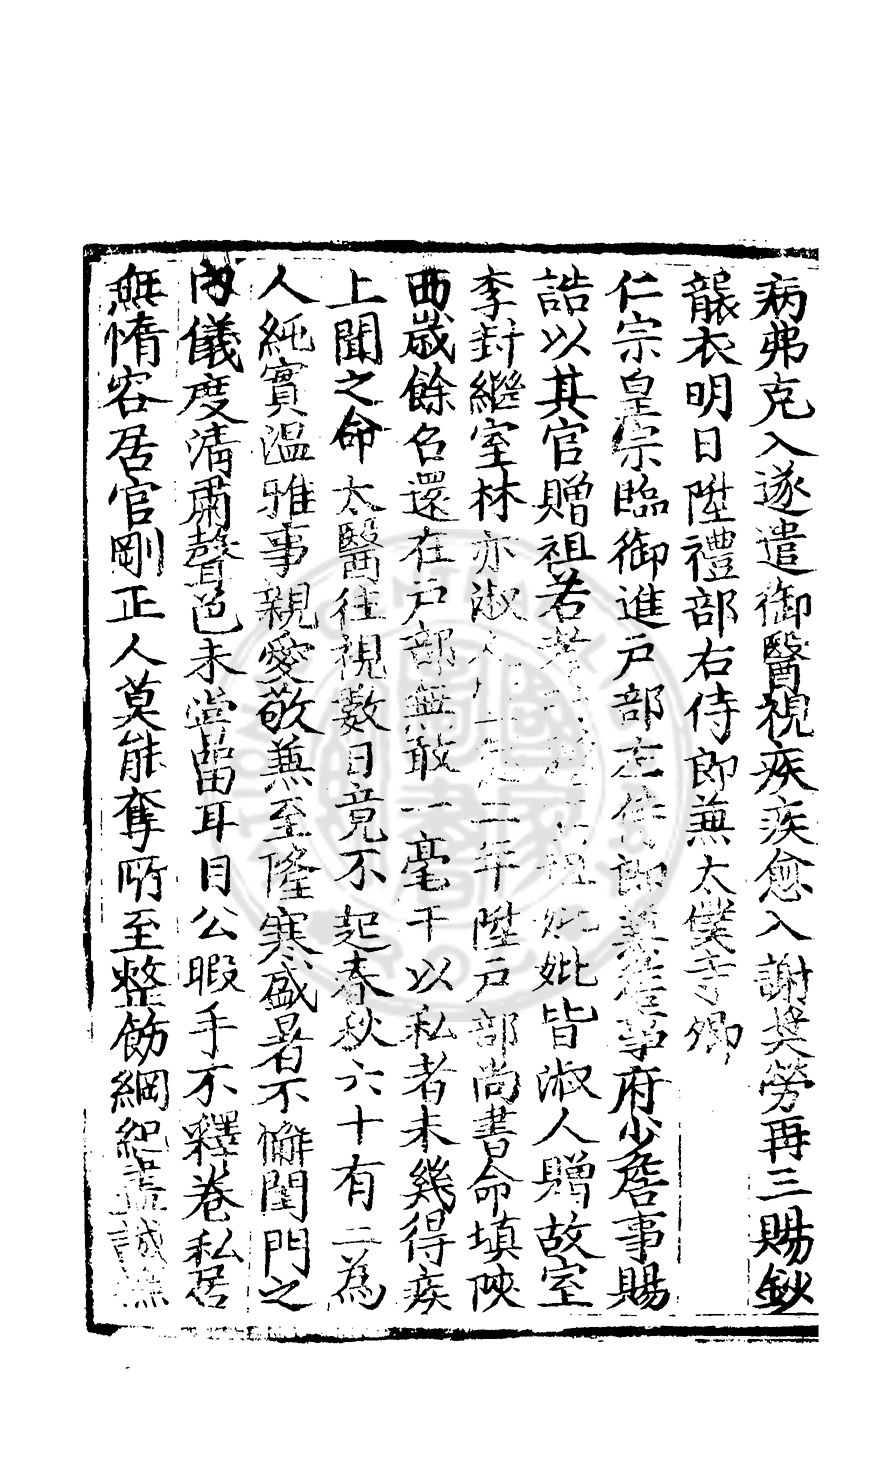 病弗克入遂遣御醫視疾疾愈入謝奬勞再三賜鈔
襲衣明日陞禮部右侍郎兼太僕寺卿
仁宗皇帝臨御進户部左侍郎兼詹事府少詹事賜
誥以其官贈祖若考祖妣妣皆淑人贈故室
李封繼室林亦淑二年陞户部尚書命填陜
西歲餘召還在户部無敢一毫干以私者未幾得疾
上聞之命太醫往視數日竟不起春秋六十有二為
人純實溫雅事親愛敬兼至隆寒盛暑不懈閨門之
内儀度清肅聲色未嘗留耳目公暇手不釋卷私居
無惰容居官剛正人莫能奪所至整飭綱紀盡誠無